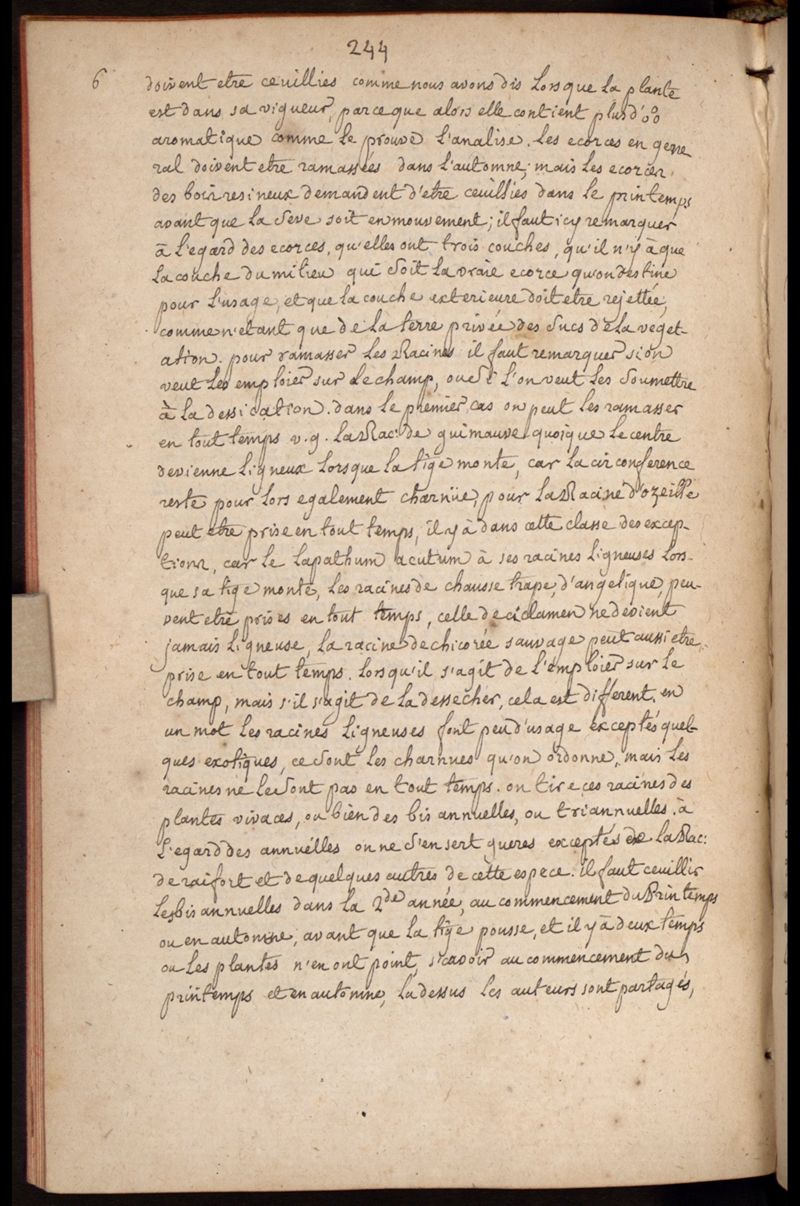 244
6 doivent etre ceuillies comme nous avons dis Lorsque la plante
est dans sa vigueur, parceque alors elle contient plus d'
aromatique comme Le prouve L'analise. Les ecorces en gene
ral doivent etre ramassées dans L'automne; mais Les ecorces
des bois resineux demandent d'etre ceuillies dans Le printemps
avant que La Seve soit en mouvement; il faut icy remarquer
à L'egard des ecorces, qu'elles ont trois couches, qu'il n'y à que
La couche du milieu qui soit La vraie ecorce qu'on destine
pour L'usage, et que La couche exterieure doit etre rejettée,
comme n'etant que de La terre privée des Sucs de La veget-
ation. pour ramasser Les Racines il faut remarquer si on
veut Les emploier sur Le champ, ou si L'on veut Les Soumettre
à La dessication. dans Le premier cas on peut Les ramasser
en tout temps v.g. La Rac: de guimauve quoique Le centre
devienne Ligneux Lorsque La tige monte, car La circonference
reste pour Lors egalement charnüe, pour La Racine d'ozeille
peut etre prise en tout temps, il y à dans cette classe des excep-
tions, car Le Lapathum acutum à ses racines Ligneuses Lors-
que sa tige monte, Les racines de chausse trape, d'angelique, peu-
vent etre prises en tout temps, celle de ciclamen ne devient
jamais Ligneuse, La racine de chicorée sauvage peut aussi etre
prise en tout temps. Lorsqu'il s'agit de L'emploier sur Le
champ, mais s'il s'agit de La dessecher, cela est différent. en
un mot Les racines Ligneuses font peu d'usage exceptés quel-
ques exotiques, ce sont Les charnues qu'on ordonne, mais Les
racines ne Le sont pas en tout temps. on tire ces racines des
plantes vivaces, ou bien des bis annuelles, ou triannuelles. à
L'egard des annuelles on ne s'en sert gueres exceptés de La Rac:
de raifort et de quelques autres de cette espece. il faut ceuillir
Les bis annuelles dans La 2de année, au commencement du Printemps
ou en automne, avant que La tige pousse, et il y à deux temps
ou Les plantes n'en ont point, sçavoir au commencement du
printemps et en automne, La dessus Les auteurs sont partagés,